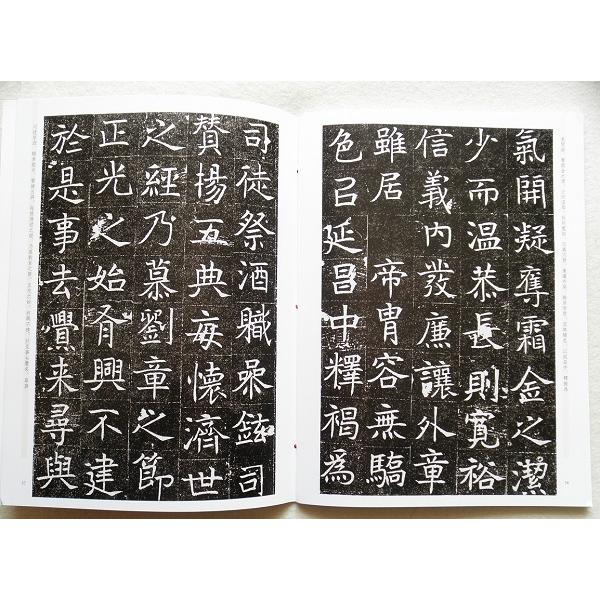 氣開凝奪霜金之潔
少而温恭長則寬裕
信義内發廉讓外章
雖居 帝胄容無驕
色召延昌中釋褐爲
司徒祭酒職叅鉉司
贊揚五典每懷濟世
之經乃慕劉章之節
正光之始有興不建
於是事去釁來尋與